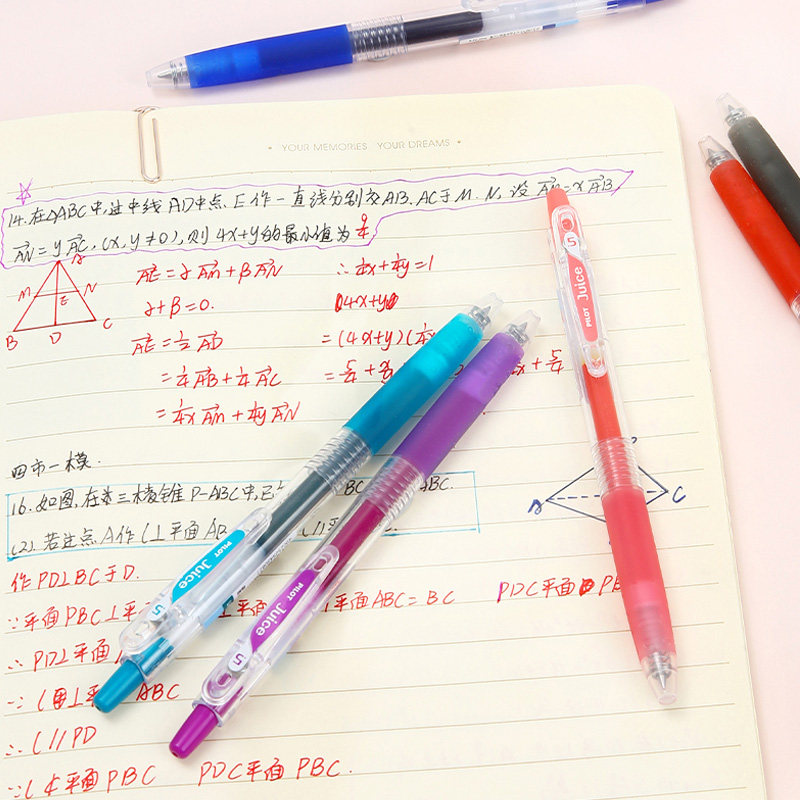 • YOUR MEMORIES YOUR DREAMS •
14. 在△ABC中,过中线AD中点E作一直线分别交AB. AC于M. N, 设 AM=xAB.
AN = yAC, (x, y≠0), 则 4x+y的最小值为 9/4
A
M E N
B D C
AE = γAM + βAN
γ+β=0.
AE = 1/2 AD
= 1/4 AB + 1/4 AC
= 1/4x AM + 1/4y AN
∴ 1/4x + 1/4y = 1
4x+y
= (4x+y)(1/4x
= 5/4 + x/y + 5/4
四市一模.
16. 如图, 在三棱锥 P-ABC中, BC ABC.
(2). 若过点A作 l⊥平面AB l∥平
A C
作PD⊥BC于D.
∵平面PBC⊥平 平面ABC=BC PDC平面PB
∴ PD⊥平面
∵ l⊥平 ABC
∴ l∥PD
∵ l⊄平面PBC PDC平面PBC.
PILOT Juice 05
PILOT Juice 05
PILOT Juice 05